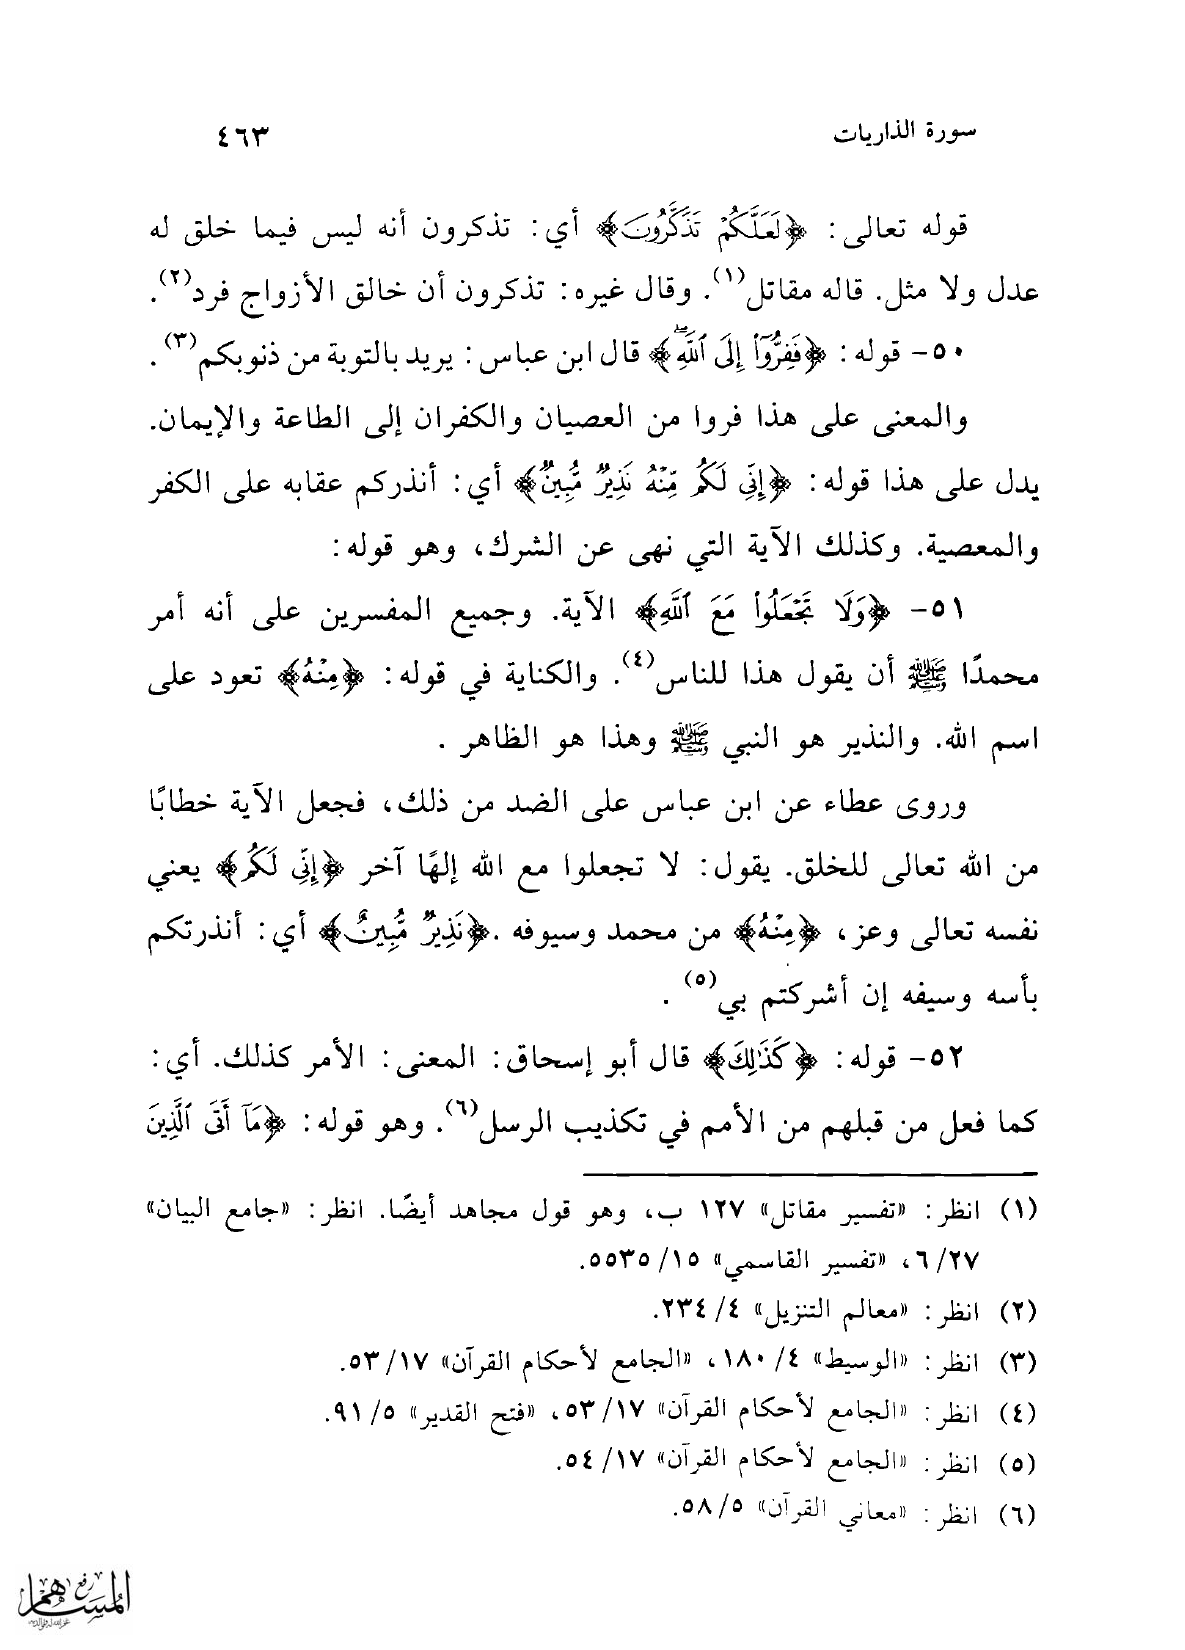 سورة الذاريات ٤٦٣
قوله تعالى: ﴿لَعَلَّكُمْ تَذَكَّرُونَ﴾ أي: تذكرون أنه ليس فيما خلق له
عدل ولا مثل. قاله مقاتل(١). وقال غيره: تذكرون أن خالق الأزواج فرد(٢).
٥٠- قوله: ﴿فَفِرُّوٓا۟ إِلَى ٱللَّهِۖ﴾ قال ابن عباس: يريد بالتوبة من ذنوبكم(٣).
والمعنى على هذا فروا من العصيان والكفران إلى الطاعة والإيمان.
يدل على هذا قوله: ﴿إِنِّى لَكُم مِّنْهُ نَذِيرٌ مُّبِينٌ﴾ أي: أنذركم عقابه على الكفر
والمعصية. وكذلك الآية التي نهى عن الشرك، وهو قوله:
٥١- ﴿وَلَا تَجْعَلُوا۟ مَعَ ٱللَّهِ﴾ الآية. وجميع المفسرين على أنه أمر
محمدًا ﷺ أن يقول هذا للناس(٤). والكناية في قوله: ﴿مِنْهُ﴾ تعود على
اسم الله. والنذير هو النبي ﷺ وهذا هو الظاهر .
وروى عطاء عن ابن عباس على الضد من ذلك، فجعل الآية خطابًا
من الله تعالى للخلق. يقول: لا تجعلوا مع الله إلهًا آخر ﴿إِنِّى لَكُم﴾ يعني
نفسه تعالى وعز، ﴿مِنْهُ﴾ من محمد وسيوفه .﴿نَذِيرٌ مُّبِينٌ﴾ أي: أنذرتكم
بأسه وسيفه إن أشركتم بي(٥) .
٥٢- قوله: ﴿كَذَٰلِكَ﴾ قال أبو إسحاق: المعنى: الأمر كذلك. أي:
كما فعل من قبلهم من الأمم في تكذيب الرسل(٦). وهو قوله: ﴿مَآ أَتَى ٱلَّذِينَ
(١) انظر: «تفسير مقاتل» ١٢٧ ب، وهو قول مجاهد أيضًا. انظر: «جامع البيان»
٦/٢٧، «تفسير القاسمي» ١٥/ ٥٥٣٥.
(٢) انظر: «معالم التنزيل» ٤/ ٢٣٤.
(٣) انظر: «الوسيط» ٤/ ١٨٠، «الجامع لأحكام القرآن» ١٧/ ٥٣.
(٤) انظر: «الجامع لأحكام القرآن» ١٧/ ٥٣، «فتح القدير» ٥/ ٩١.
(٥) انظر: «الجامع لأحكام القرآن» ١٧/ ٥٤.
(٦) انظر: «معاني القرآن» ٥/ ٥٨.